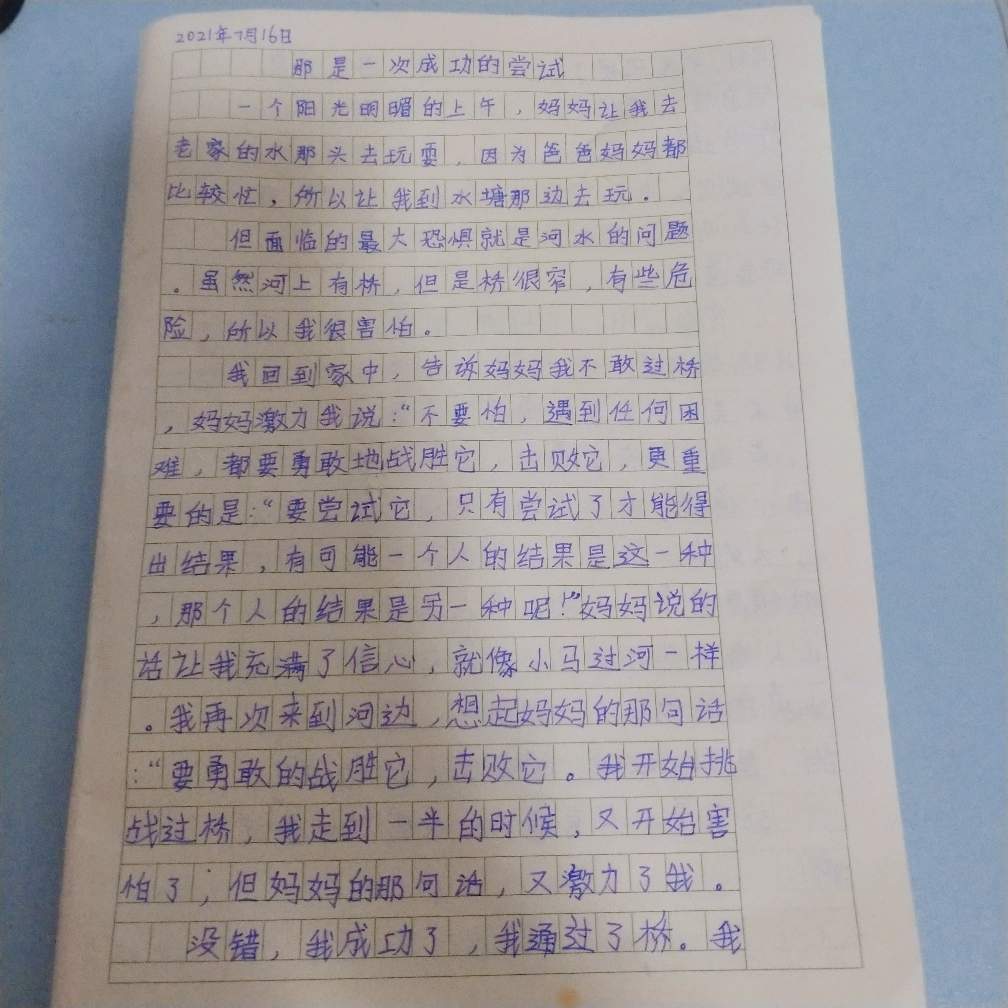 2021年7月16日
那是一次成功的尝试
一个阳光明媚的上午，妈妈让我去
老家的水那头去玩耍，因为爸爸妈妈都
比较忙，所以让我到水塘那边去玩。
但面临的最大恐惧就是河水的问题
。虽然河上有桥，但是桥很窄，有些危
险，所以我很害怕。
我回到家中，告诉妈妈我不敢过桥
，妈妈激力我说：“不要怕，遇到任何困
难，都要勇敢地战胜它，击败它，更重
要的是：“要尝试它，只有尝试了才能得
出结果，有可能一个人的结果是这一种
，那个人的结果是另一种呢！”妈妈说的
话让我充满了信心，就像小马过河一样
。我再次来到河边，想起妈妈的那句话
：“要勇敢的战胜它，击败它。我开始挑
战过桥，我走到一半的时候，又开始害
怕了，但妈妈的那句话，又激力了我。
没错，我成功了，我通过了桥。我